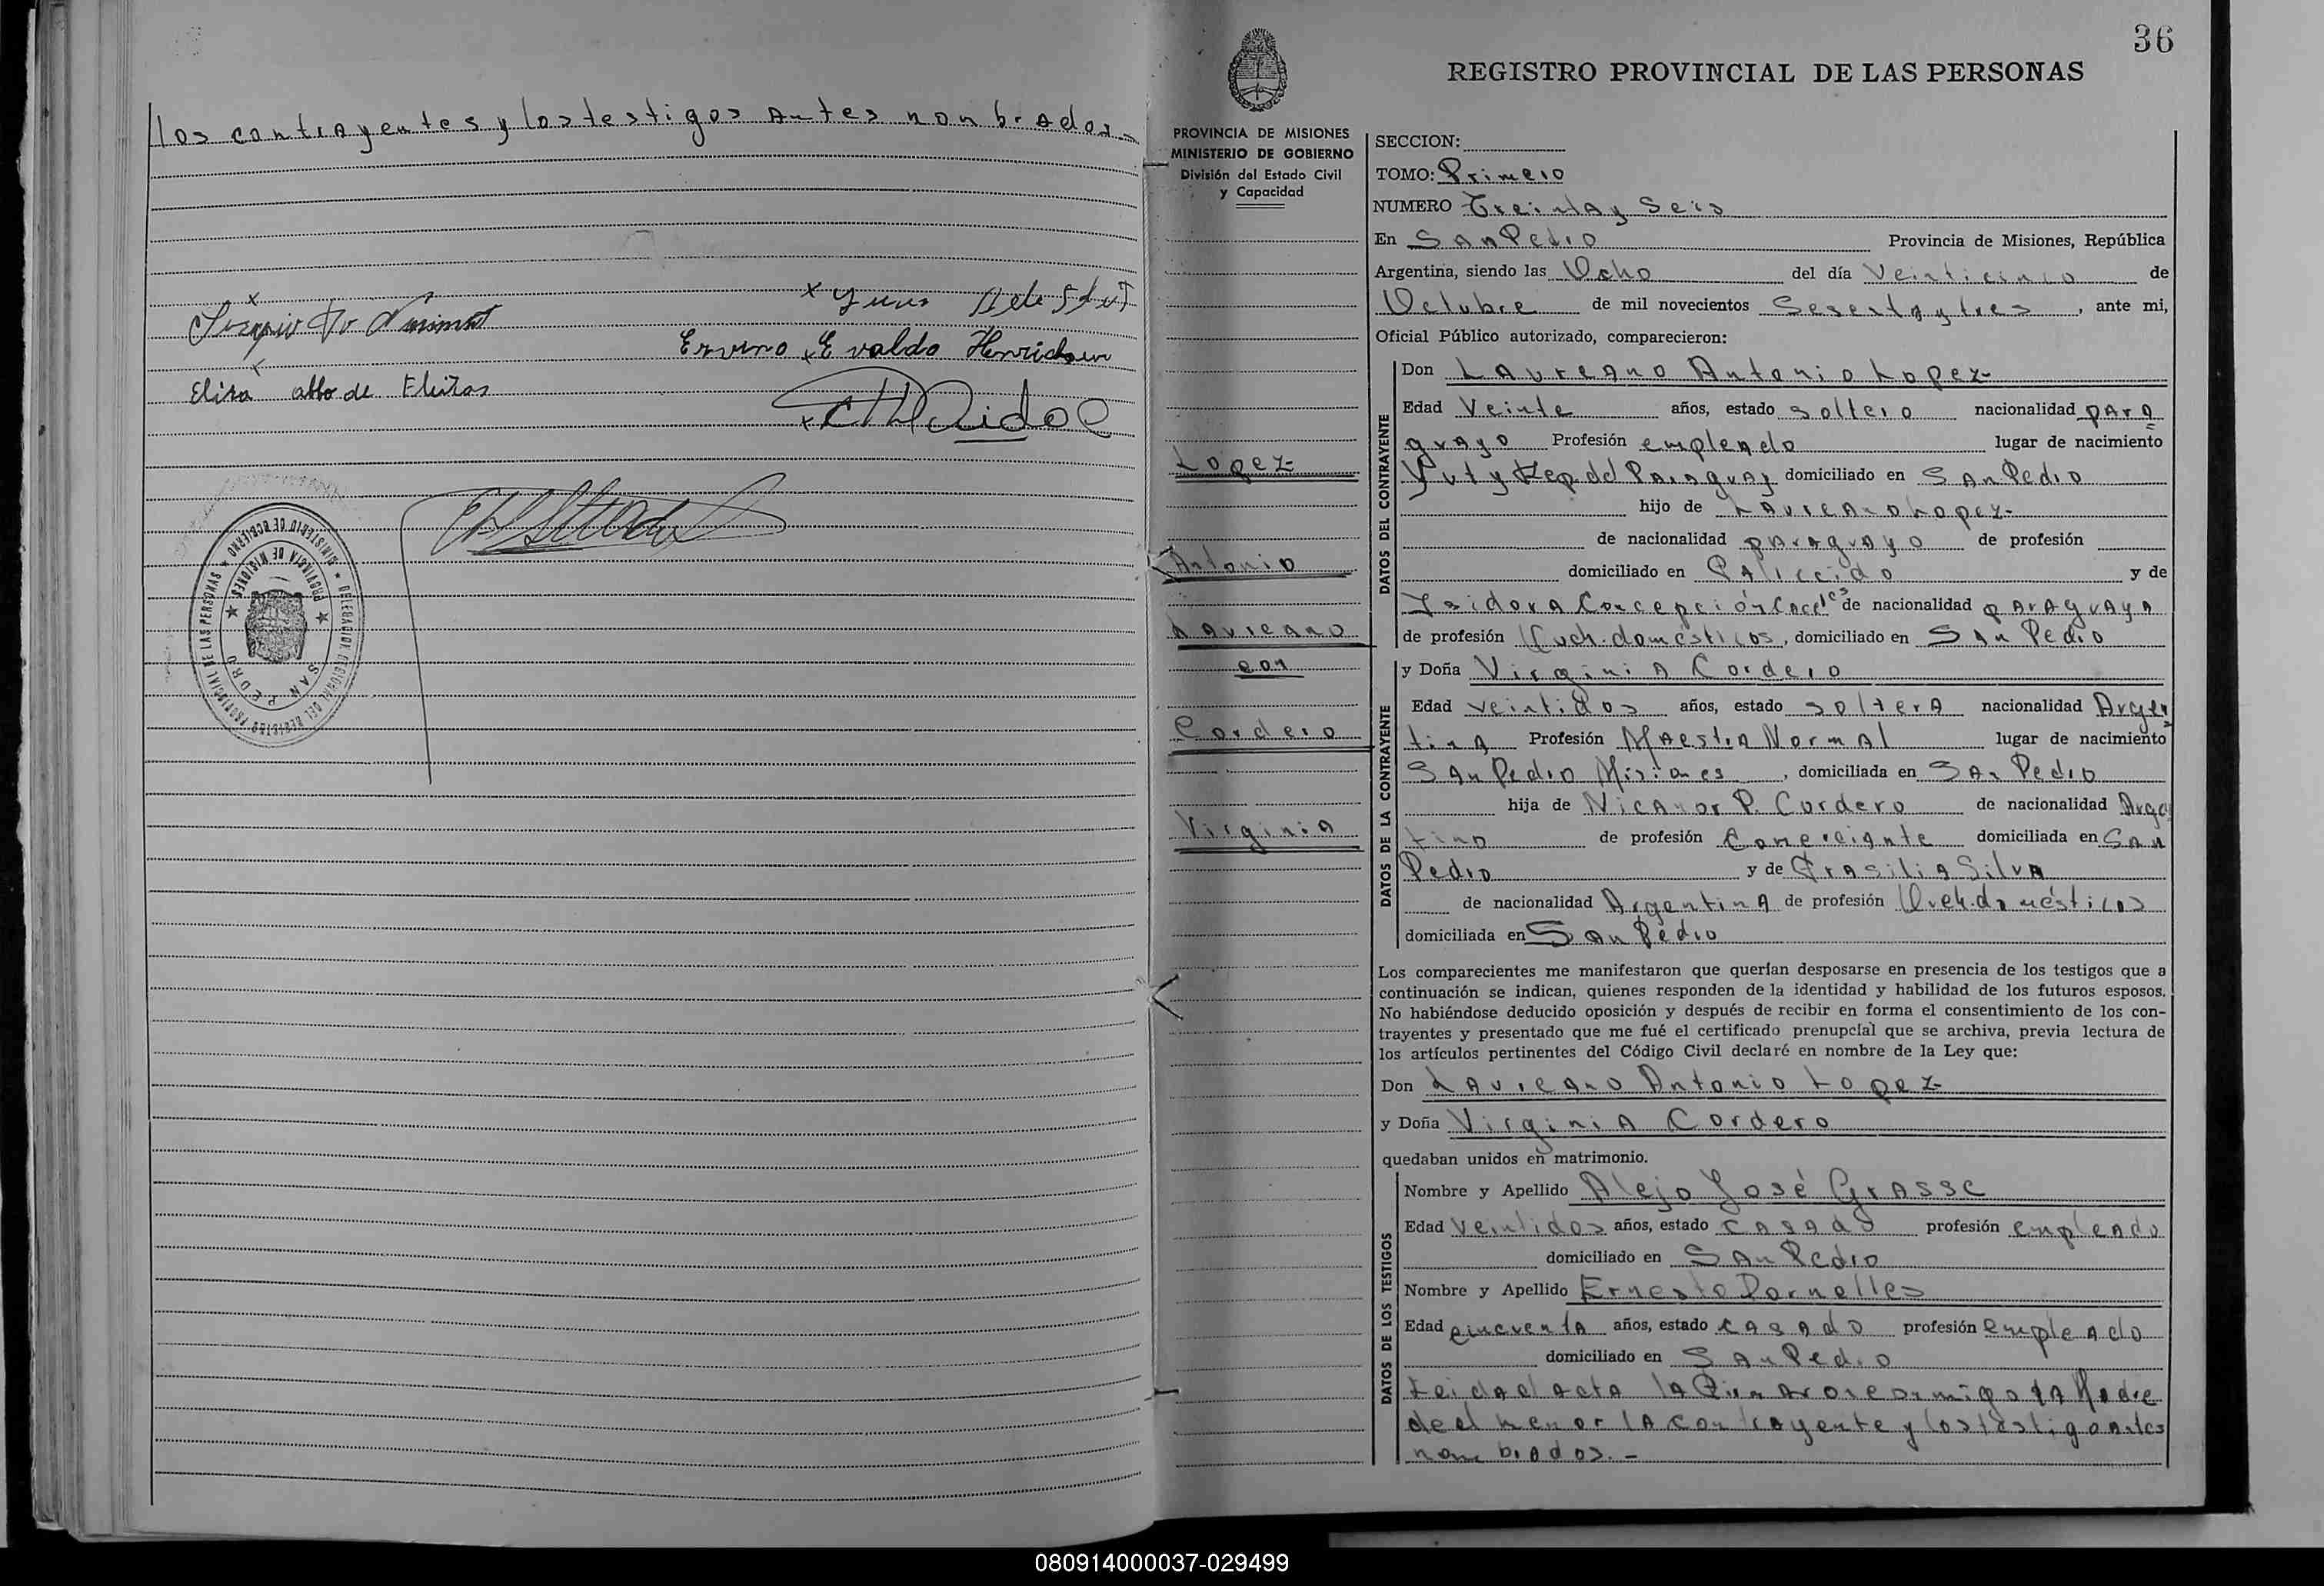 los contrayentes y los testigos antes nonbrados.-
Elisa
Ervino Evaldo
MINISTERIO DE GOBIERNO
PROVINCIA DE MISIONES
SAN PEDRO
36
REGISTRO PROVINCIAL DE LAS PERSONAS
PROVINCIA DE MISIONES
MINISTERIO DE GOBIERNO
División del Estado Civil
y Capacidad
Lopez-
Antonio
Laureano
con
Cordero
Virginia
SECCION:
TOMO: Primero
NUMERO Treinta y Seis
En San Pedro Provincia de Misiones, República
Argentina, siendo las Ocho del día Veinticinco de
Octubre de mil novecientos Sesenta y tres, ante mi,
Oficial Público autorizado, comparecieron:
DATOS DEL CONTRAYENTE
Don Laureano Antonio Lopez-
Edad Veinte años, estado soltero nacionalidad para
guayo Profesión empleado lugar de nacimiento
Yuty Rep del Paraguay domiciliado en San Pedro
hijo de Laureano Lopez-
de nacionalidad paraguayo de profesión
domiciliado en Falicido y de
Ysidora Concepción de nacionalidad paraguaya
de profesión Queh. domésticos, domiciliado en San Pedro
DATOS DE LA CONTRAYENTE
y Doña Virginia Cordero
Edad veintidos años, estado soltera nacionalidad Argen
tina Profesión Maestra Normal lugar de nacimiento
San Pedro Misiones, domiciliada en San Pedro
hija de Nicanor P. Cordero de nacionalidad Argen
tino de profesión Comerciante domiciliada en San
Pedro y de Brasilia Silva
de nacionalidad Argentina de profesión Queh. domésticos
domiciliada en San Pedro
Los comparecientes me manifestaron que querían desposarse en presencia de los testigos que a
continuación se indican, quienes responden de la identidad y habilidad de los futuros esposos.
No habiéndose deducido oposición y después de recibir en forma el consentimiento de los con-
trayentes y presentado que me fué el certificado prenupcial que se archiva, previa lectura de
los artículos pertinentes del Código Civil declaré en nombre de la Ley que:
Don Laureano Antonio Lopez-
y Doña Virginia Cordero
quedaban unidos en matrimonio.
DATOS DE LOS TESTIGOS
Nombre y Apellido Alejo José Grasse
Edad Veintidos años, estado casado profesión empleado
domiciliado en San Pedro
Nombre y Apellido Ernesto Dornelles
Edad cincuenta años, estado casado profesión empleado
domiciliado en San Pedro
Leida el acta la firmaron conmigo la Madre
de el menor la contrayente y los testigo antes
nombrados.-
080914000037-029499